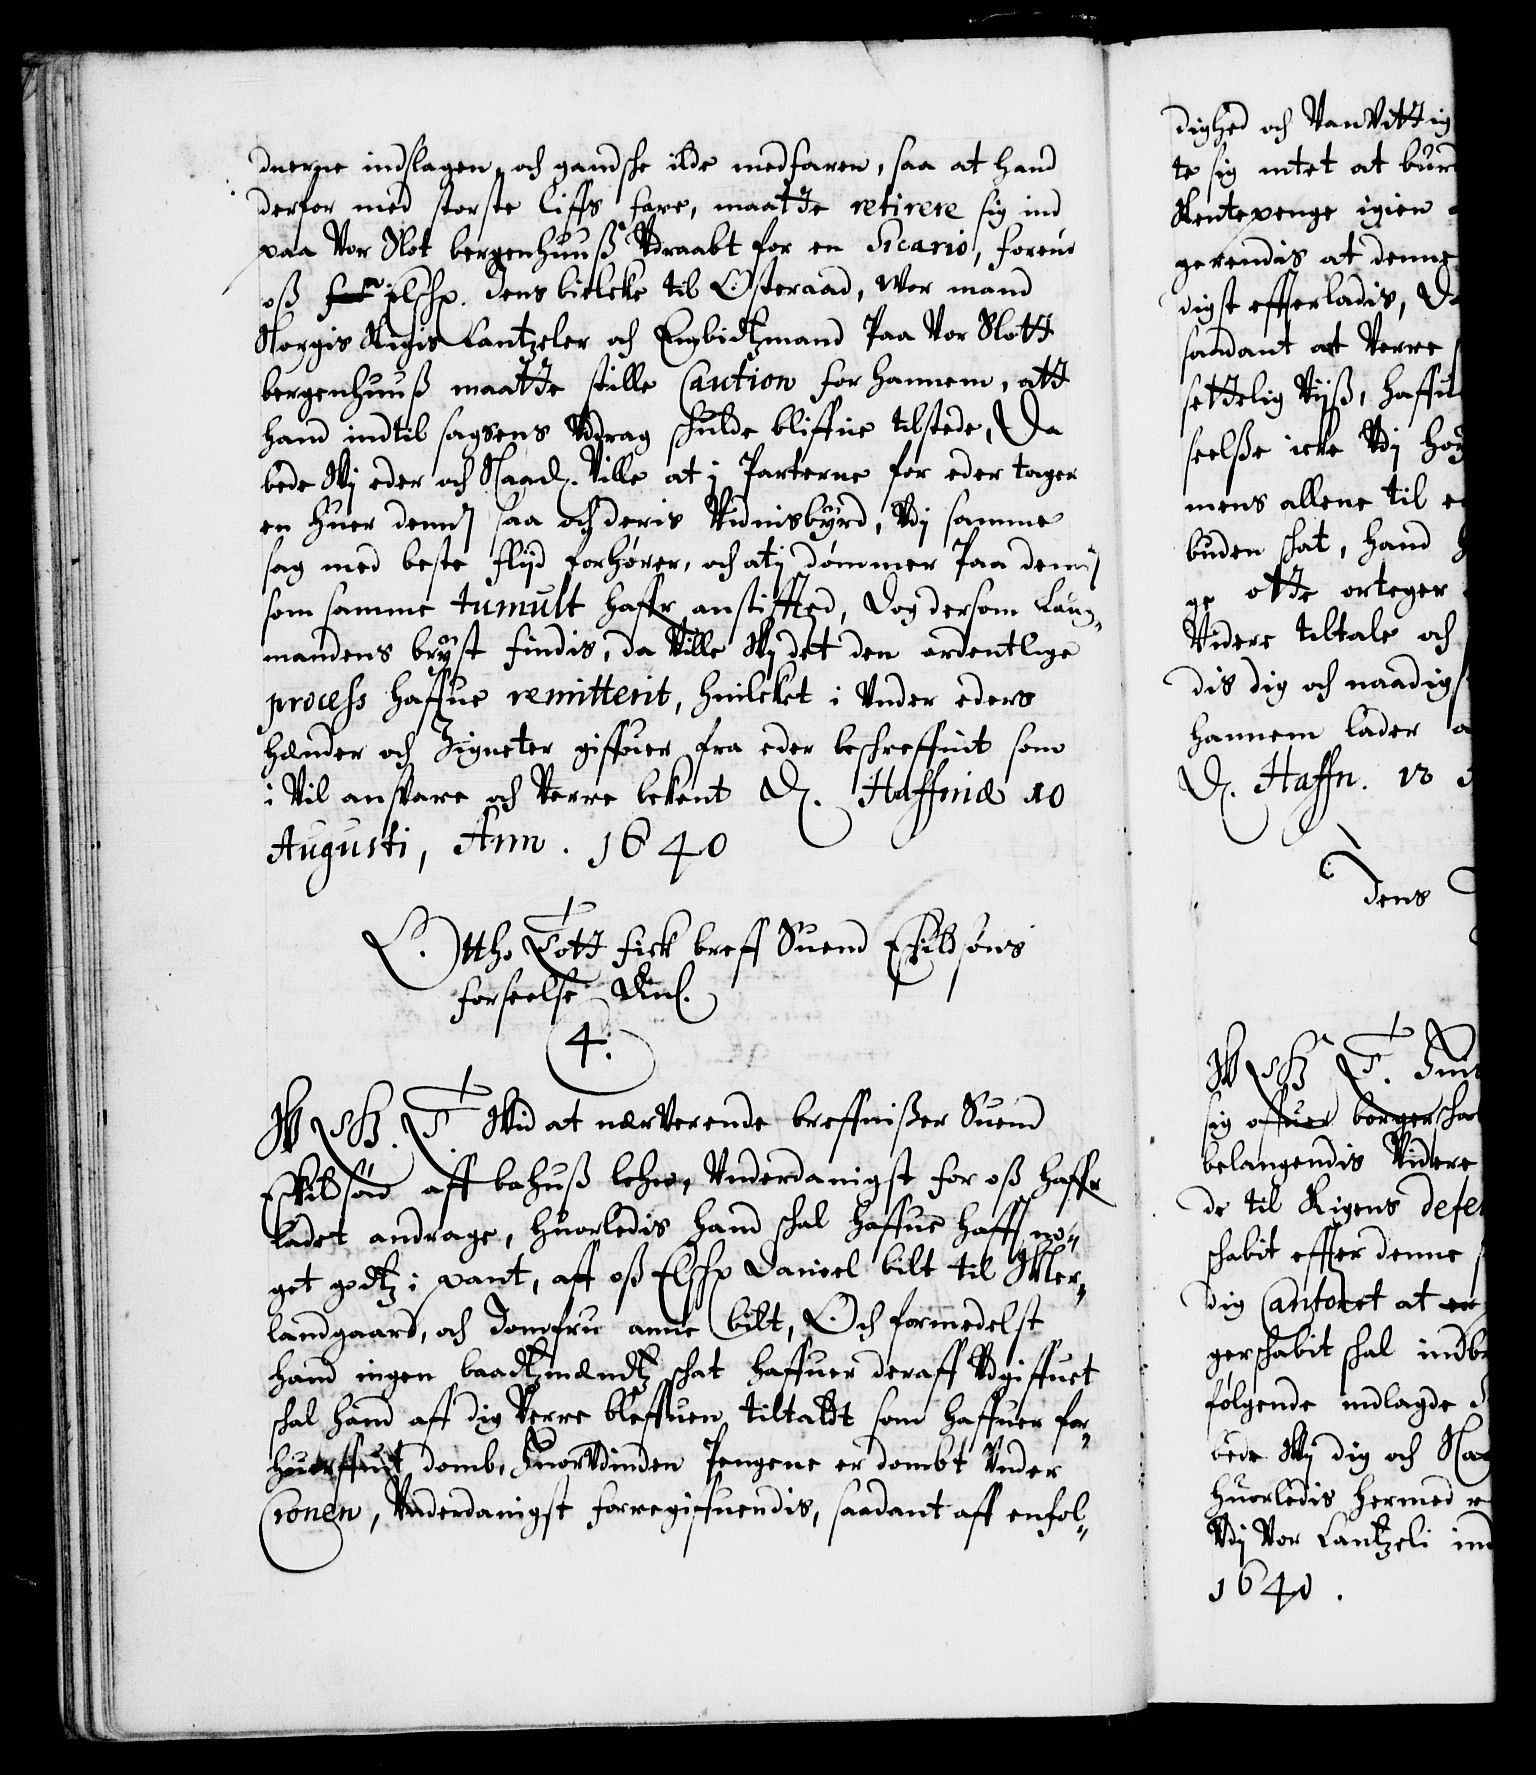 duerne indslagen, och gandske ilde medfaren, saa at hand
derfor med storste liffs fare, maatte retirere sig ind
paa Vor Slot bergenhuuß Vdraabt for en Sicario, foruden
oß Elskel. Jens bielcke til Østeraad, Wor mand
Norgis Rigis Cantzeler och Embidtzmand Paa Vor Slott
bergenhuuß maatte stille Caution for hannem, att
hand indtil sagsens Vddrag skulde bliffue tilstede, Da
bede Wij eder och Naad. Ville at i Parterne for eder tager
en huer dennem saa och deris Vidnisbyrd, Vdj samme
sag med beste flijd forhører, och atj dømmer Paa dennem
som samme tumult haffr anstifftед, Dog dersom Laug-
mandens brøst findis, da Ville Wj det den ordentlige
process haffue remitterit, huilcket i Vnder eders
hænder och Zigneter giffuer fra eder beskreffuit som
i Vil ansvare och Verre bekent D. Haffniæ 10
Augusti, Ann. 1640
Ottho Tott fick breff Suend Eskildsøns
forseelse Anl.
4.
W S G. T. Wid at nærverende breffuißer Suend
Eskildsøn aff bahuß lehn, Vnderdanigst for oß haffr
ladet andrage, huorledis hand schal haffue hafft no-
get godtz i pant, aff oß Elskel Danieel bilt til Mor-
landgaard, och Jomfru anne bilt, Och formedelst
hand ingen baadtzmændtz schat haffuer deraff Vdgiffuet
schal hand aff dig Verre bleffuen tiltaldt som haffuer for-
huerffuit domb, huorVdinden Pengene er dombt Vnder
Cronen, Vnderdanigst forregiffuendis, saadant aff enfol-
dighed och VanVittig
te sig intet at burd
Rentepenge igien
gerendis at denne
digst effterladis, Da
saadant at Verre
settelig Vijß, haffu
seelße icke Vdj høy
mens allene til e
buden schat, hand
ge otte orteger
Videre tiltale och
dis dig och naadigst
hannem lader
D. Haffn. 13
Jens
W S G T.
sig offuer borgerska
belangendis Videre
de til Rigens defen
schabit effter denne
dig Cantoret at
gerschabit schal indbr
følgende indlagde
bede Wij dig och Naa
huorledis hermed
Vdj Vor Cantzeli ind
1640.